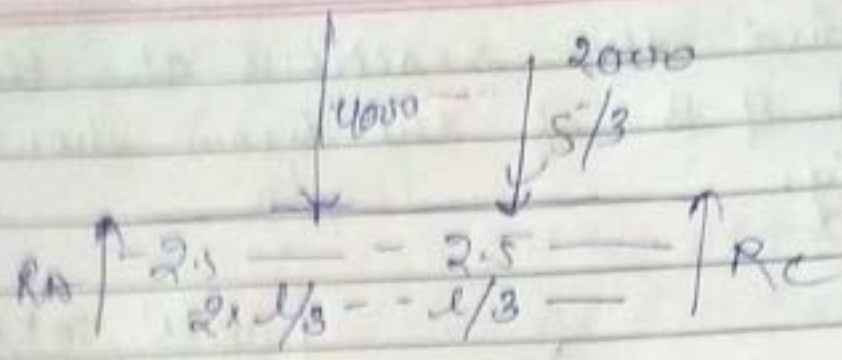 2000
4000
5/3
RA 2.5 2.5 RC
2x l/3 -- l/3